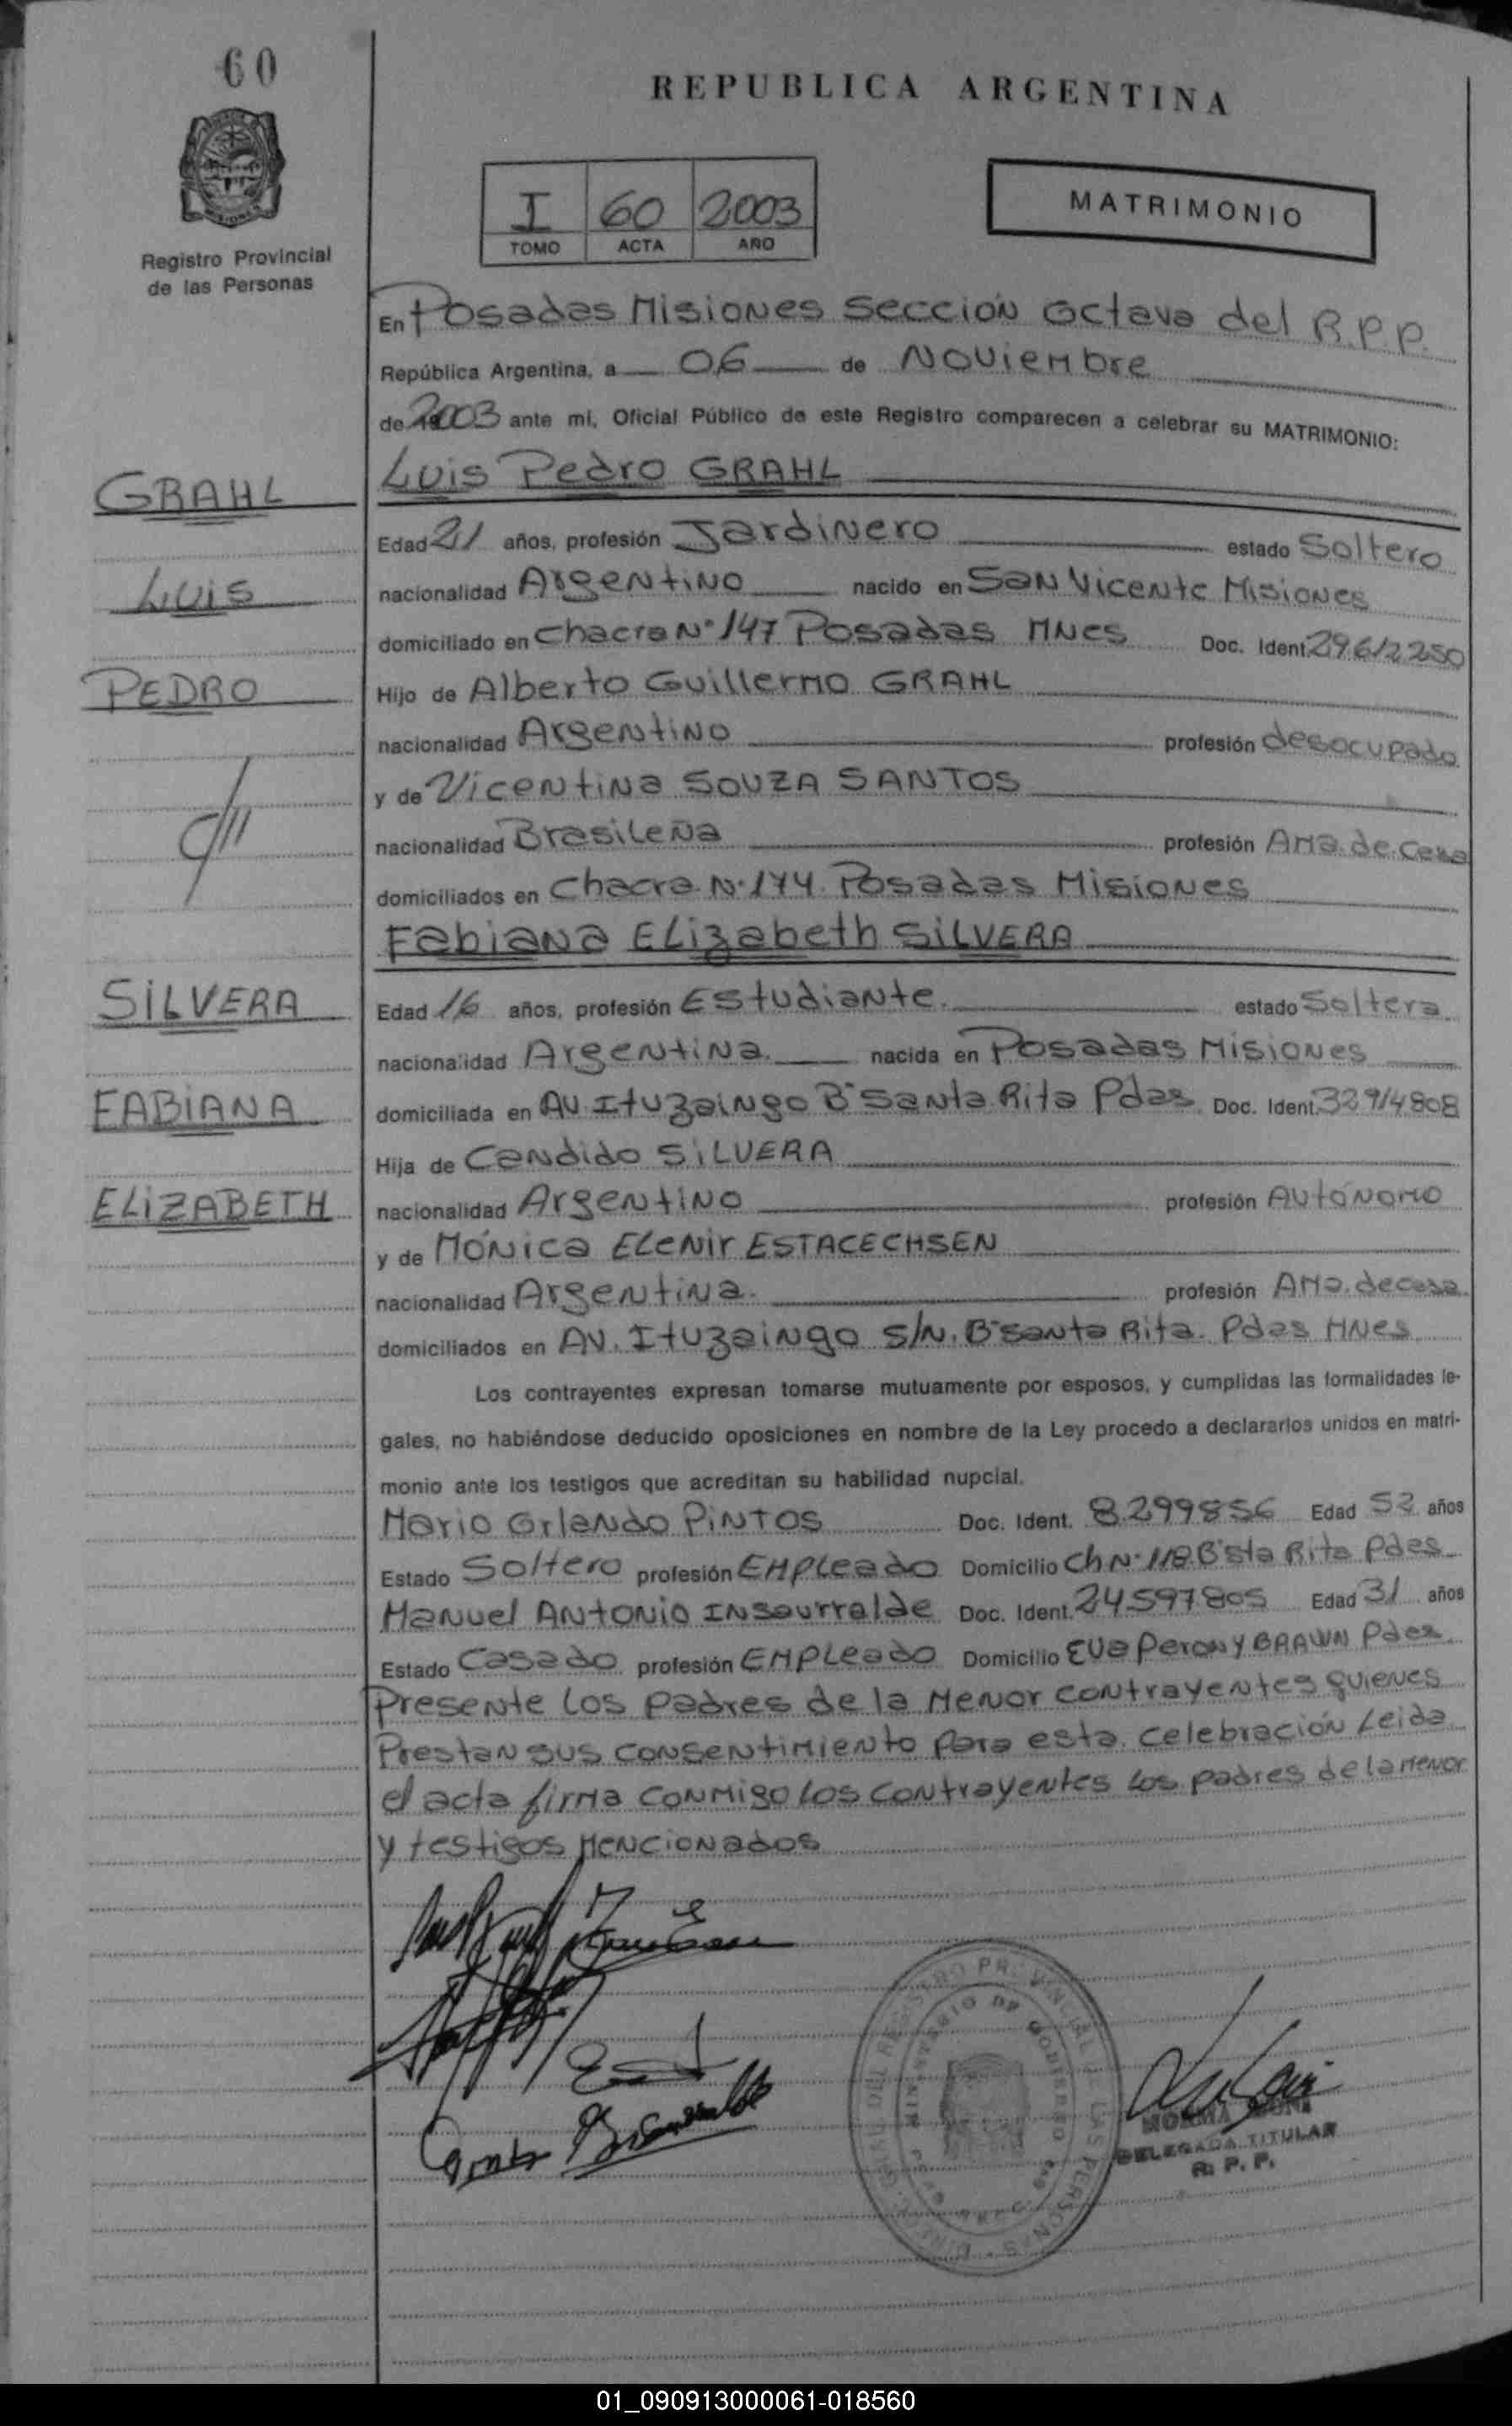 60
REPUBLICA ARGENTINA
I 60 2003
TOMO ACTA AÑO
MATRIMONIO
Registro Provincial
de las Personas
En Posadas Misiones Sección Octava del R.P.P.
República Argentina, a 06 de Noviembre
de 2003 ante mi, Oficial Público de este Registro comparecen a celebrar su MATRIMONIO:
GRAHL
Luis Pedro GRAHL
Edad 21 años, profesión Jardinero estado Soltero
LUIS
nacionalidad Argentino nacido en San Vicente Misiones
domiciliado en Chacra N° 147 Posadas Mnes Doc. Ident. 29612250
PEDRO
Hijo de Alberto Guillermo GRAHL
nacionalidad Argentino profesión desocupado
y de Vicentina SOUZA SANTOS
nacionalidad Brasileña profesión Ama de Casa
domiciliados en Chacra N° 144 Posadas Misiones
Fabiana Elizabeth SILVERA
SILVERA
Edad 16 años, profesión Estudiante. estado Soltera
nacionalidad Argentina. nacida en Posadas Misiones
FABIANA
domiciliada en Av. Ituzaingo B° Santa Rita Pdas Doc. Ident. 32914808
Hija de Candido SILVERA
ELIZABETH
nacionalidad Argentino profesión Autónomo
y de Mónica Elenir ESTACECHSEN
nacionalidad Argentina. profesión Ama de casa
domiciliados en Av. Ituzaingo S/N. B° Santa Rita. Pdas Mnes
Los contrayentes expresan tomarse mutuamente por esposos, y cumplidas las formalidades le-
gales, no habiéndose deducido oposiciones en nombre de la Ley procedo a declararlos unidos en matri-
monio ante los testigos que acreditan su habilidad nupcial.
Mario Orlando PINTOS Doc. Ident. 8.299856 Edad 52 años
Estado Soltero profesión Empleado Domicilio Ch N° 118 B° Sta Rita Pdas
Manuel Antonio Insaurralde Doc. Ident. 24597805 Edad 31 años
Estado Casado profesión Empleado Domicilio Eva Peron y BRAWN Pdas
Presente los padres de la menor contrayentes quienes
Prestan sus consentimiento para esta celebración Leida
el acta firma conmigo los contrayentes los padres de la menor
y testigos mencionados
NORMA
DELEGADA TITULAR
R. P. P.
01_090913000061-018560